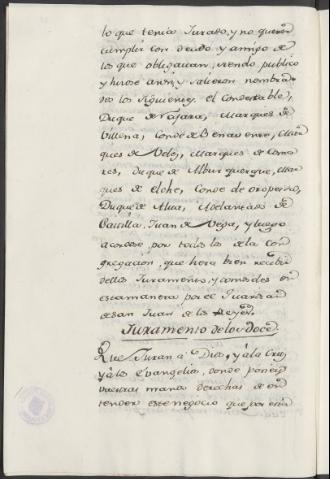 lo que tenia Jurado, y no querer
cumplir con deudo y amigo de
los que obligauan, siendo publico
y hubose ansi y salieron nombra
dos los siguientes, el Condestable,
Duque de Najara, Marques de
Villena, Conde de Benavente, Mar
ques de Velez, Marques de Coma
res, Duque de Alburquerque, Mar
ques de elche, Conde de oropesa,
Duque de Alua, Adelantado de
Castilla, Juan de Vega, y luego
acordose por todos los de la Con
gregacion, que hera bien recibir
dellos Juramento, y tomoseles en
esta manera por el Guardian
de san Juan de los Reyes.
Juramento de los doce
Que Juran a Dios, y a la Cruz
y a los Evangelios, donde poneis
vuestras manos derechas de en
tender este negocio que por esta